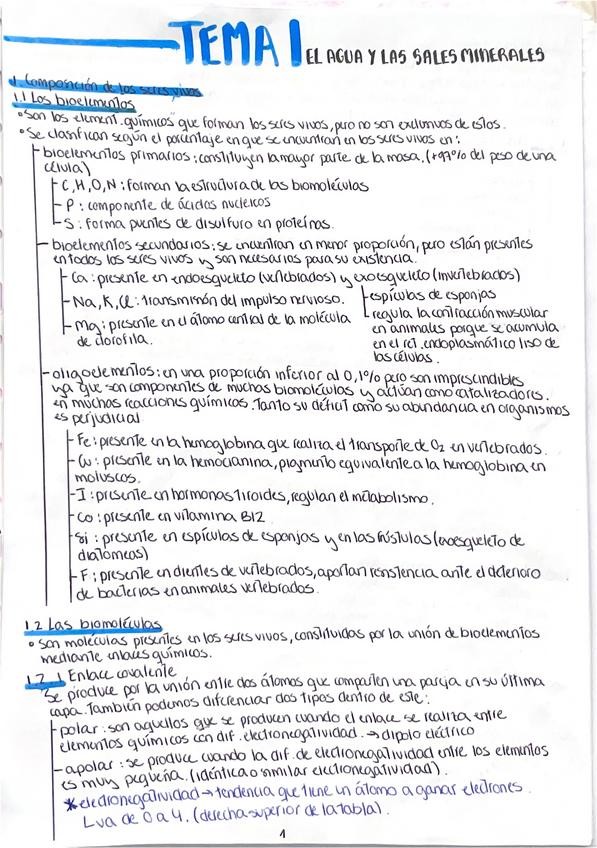 TEMA 1 EL AGUA Y LAS SALES MINERALES
1. Composición de los seres vivos
1.1 Los bioelementos
• Son los element. químicos que forman los seres vivos, pero no son exclusivos de estos.
• Se clasifican según el porcentaje en que se encuentran en los seres vivos en:
- bioelementos primarios: constituyen la mayor parte de la masa. (+97% del peso de una
célula)
- C, H, O, N: forman la estructura de las biomoléculas
- P: componente de ácidos nucleicos
- S: forma puentes de disulfuro en proteínas.
- bioelementos secundarios: se encuentran en menor proporción, pero están presentes
en todos los seres vivos y son necesarios para su existencia.
- Ca: presente en endoesqueleto (vertebrados) y exoesqueleto (invertebrados)
- espículas de esponjas
- regula la contracción muscular
en animales porque se acumula
en el ret. endoplasmático liso de
las células.
- Na, K, Cl: transmisión del impulso nervioso.
- Mg: presente en el átomo central de la molécula
de clorofila.
- oligoelementos: en una proporción inferior al 0,1% pero son imprescindibles
ya que son componentes de muchas biomoléculas y actúan como catalizadores
en muchas reacciones químicas. Tanto su déficit como su abundancia en organismos
es perjudicial
- Fe: presente en la hemoglobina que realiza el transporte de O₂ en vertebrados.
- Cu: presente en la hemocianina, pigmento equivalente a la hemoglobina en
moluscos.
- I: presente en hormonas tiroides, regulan el metabolismo.
- Co: presente en vitamina B12
- Si: presente en espículas de esponjas y en las frústulas (exoesqueleto de
diatomeas)
- F: presente en dientes de vertebrados, aportan resistencia ante el deterioro
de bacterias en animales vertebrados.
1.2 Las biomoléculas
• Son moléculas presentes en los seres vivos, constituidas por la unión de bioelementos
mediante enlaces químicos.
1.2.1 Enlace covalente
Se produce por la unión entre dos átomos que comparten una pareja en su última
capa. También podemos diferenciar dos tipos dentro de este:
- polar: son aquellos que se producen cuando el enlace se realiza entre
elementos químicos con dif. electronegatividad. → dipolo eléctrico
- apolar: se produce cuando la dif. de electronegatividad entre los elementos
es muy pequeña. (idéntica o similar electronegatividad).
* electronegatividad → tendencia que tiene un átomo a ganar electrones.
↳ va de 0 a 4. (derecha superior de la tabla).
1